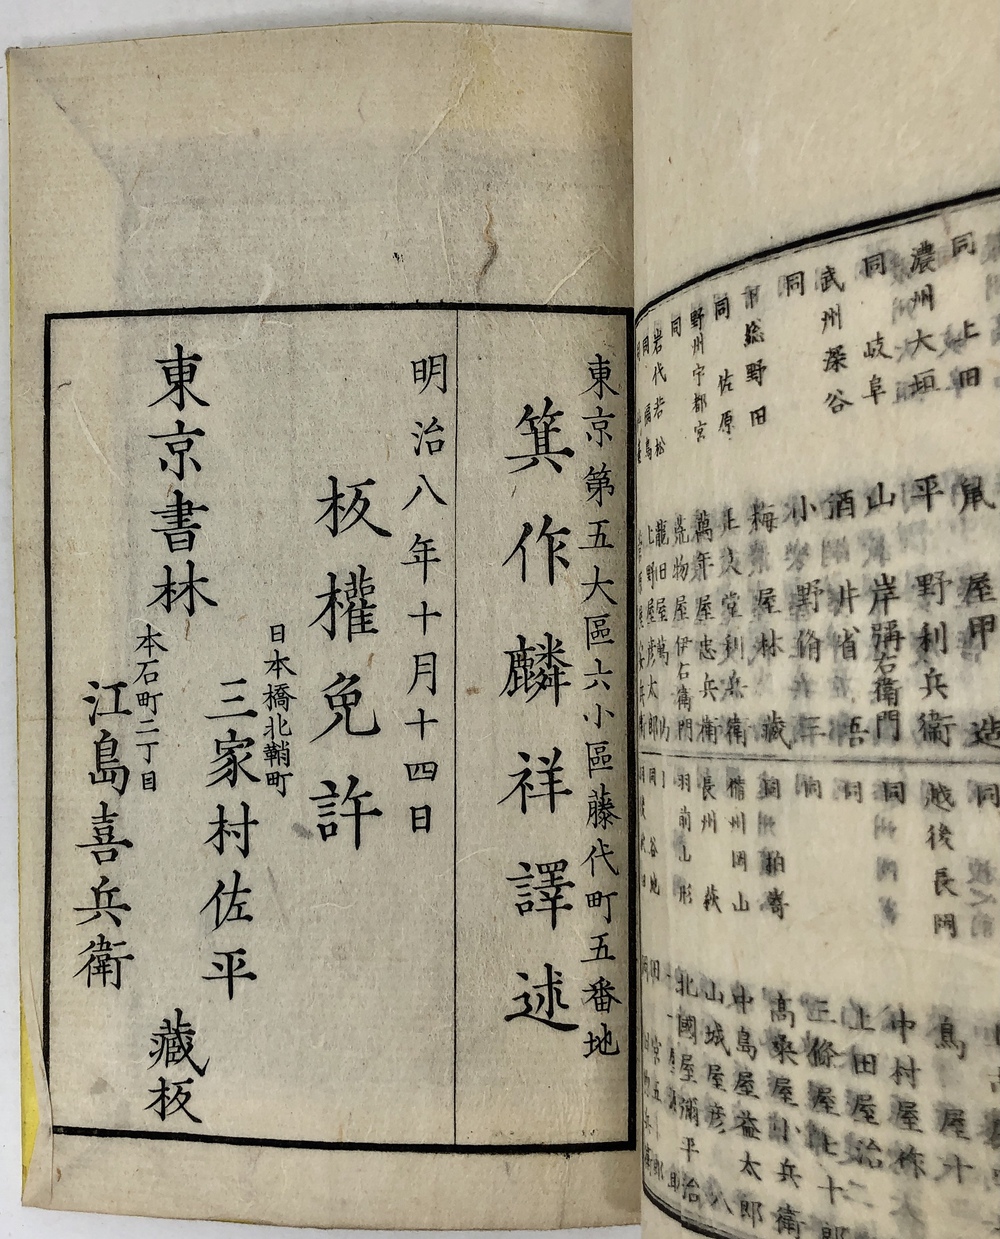 同 上田
濃州大垣
同 岐阜
武州深谷
同
野田
同 佐原
野州宇都宮
同
岩代若松
屋甲造
平野利兵衞
山岸彌右衞門
酒井省吾
小野脩三
梅屋林藏
正文堂利兵衞
萬年屋忠兵衞
荒物屋伊右衞門
龍田屋萬
上野屋彦太郎
同
越後長岡
同
同
同
同 柏崎
備州岡山
長州 萩
羽前山形
鳥屋十
中村屋作
上田屋治
三條屋七十郎
髙桒屋小兵衞
中島屋益太郎
山城屋彦八
北國屋彌平治
東京第五大區六小區藤代町五番地
箕作麟祥譯述
明治八年十月十四日
板權免許
日本橋北鞘町
三家村佐平
東京書林
本石町二丁目
江島喜兵衞
藏板